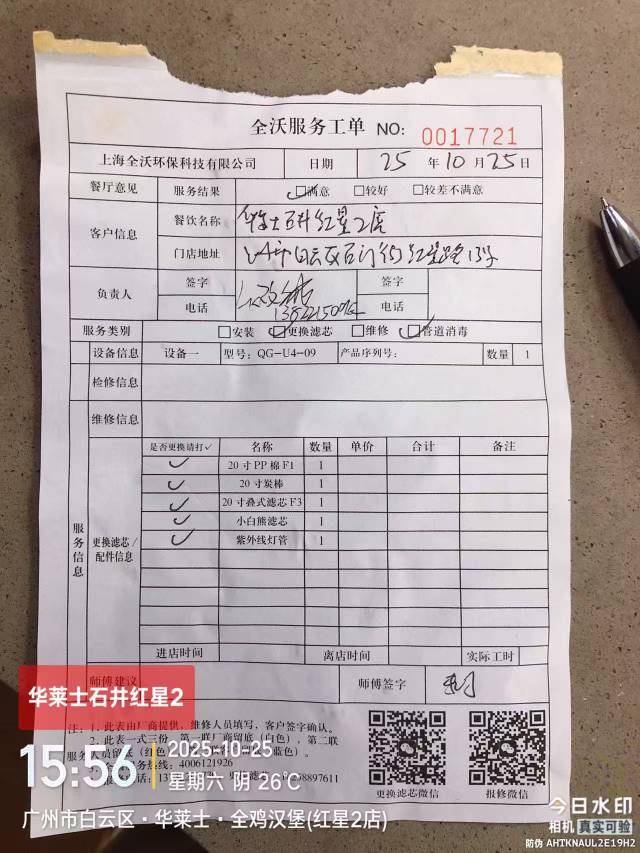 全沃服务工单 NO: 0017721
上海全沃环保科技有限公司 日期 25 年 10 月 25 日
餐厅意见 服务结果 ☑满意 □较好 □较差不满意
客户信息 餐饮名称 华莱士石井红星2店
门店地址 白云区石门街红星路13号
负责人 签字 签字
电话 电话
服务类别 □安装 ☑更换滤芯 □维修 ☑管道消毒
设备信息 设备一 型号: QG-U4-09 产品序列号: 数量 1
检修信息
维修信息
服务信息
更换滤芯/配件信息
是否更换请打✓ 名称 数量 单价 合计 备注
✓ 20寸PP棉F1 1
✓ 20寸炭棒 1
✓ 20寸叠式滤芯F3 1
✓ 小白熊滤芯 1
✓ 紫外线灯管 1
进店时间 离店时间 实际工时
师傅建议 师傅签字
华莱士石井红星2
注: 1、此表由厂商提供, 维修人员填写, 客户签字确认。
2、此表一式三份, 第一联厂商留底(白色), 第二联
服务人员留底(红色
蓝色)。
服务热线: 4006121926
更换滤芯微信 报修微信
15:56 2025-10-25
星期六 阴 26°C
广州市白云区·华莱士·全鸡汉堡(红星2店)
今日水印
相机 真实可验
防伪 AHTKNAUL2E19H2